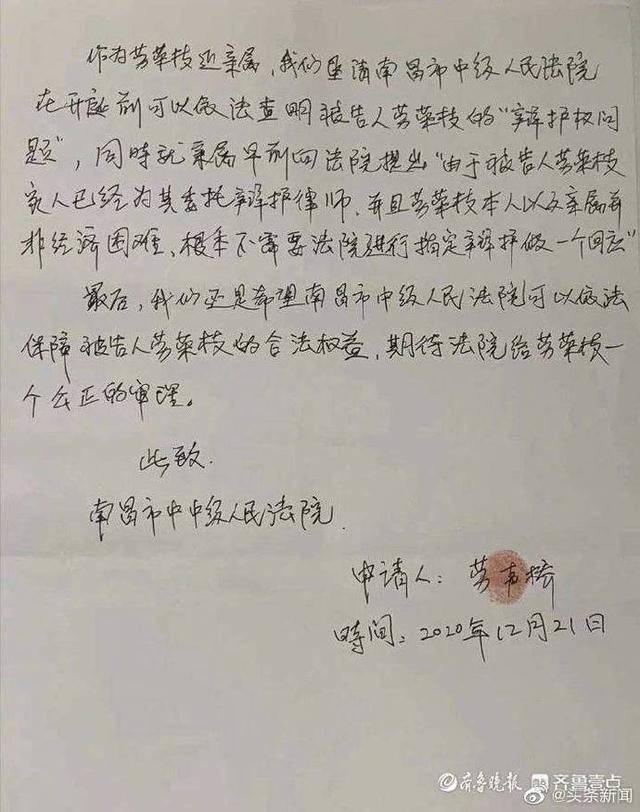 作为劳荣枝近亲属，我们恳请南昌市中级人民法院
在开庭前可以依法查明被告人劳荣枝的“辩护权问
题”，同时就亲属早前向法院提出“由于被告人劳荣枝
家人已经为其委托辩护律师、并且劳荣枝本人以及亲属并
非经济困难、根本不需要法院进行指定辩护做一个回应”
最后，我们还是希望南昌市中级人民法院可以依法
保障被告人劳荣枝的合法权益，期待法院给劳荣枝一
个公正的审理。
此致.
南昌市中中级人民法院.
申请人：劳 桥
时间、2020年12月21日
齐鲁晚报 齐鲁壹点
@头条新闻